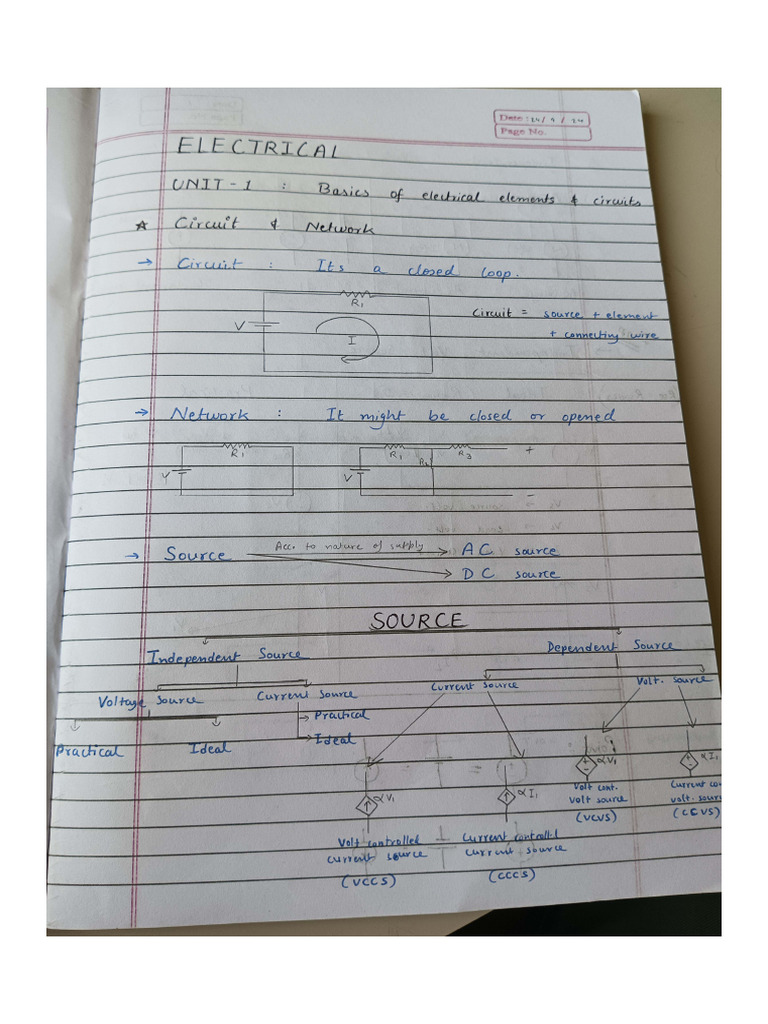 Date : 24/9/24
Page No.
ELECTRICAL
UNIT-1 : Basics of electrical elements & circuits
☆ Circuit & Network
→ Circuit : Its a closed loop.
R1
V
I
Circuit = source + element
+ connecting wire
→ Network : It might be closed or opened
R1
V
R1 R2 R3 +
V
-
→ Source Acc. to nature of supply → AC source
→ DC source
SOURCE
Independent Source Dependent Source
Voltage Source Current Source Current Source Volt. source
Practical Ideal
→ Practical
→ Ideal
αV1 αI1 αV1 αI1
Volt controlled
current source
(VCCS)
Current controlled
current source
(CCCS)
Volt cont.
volt source
(VCVS)
Current co
volt. sourc
(CCVS)